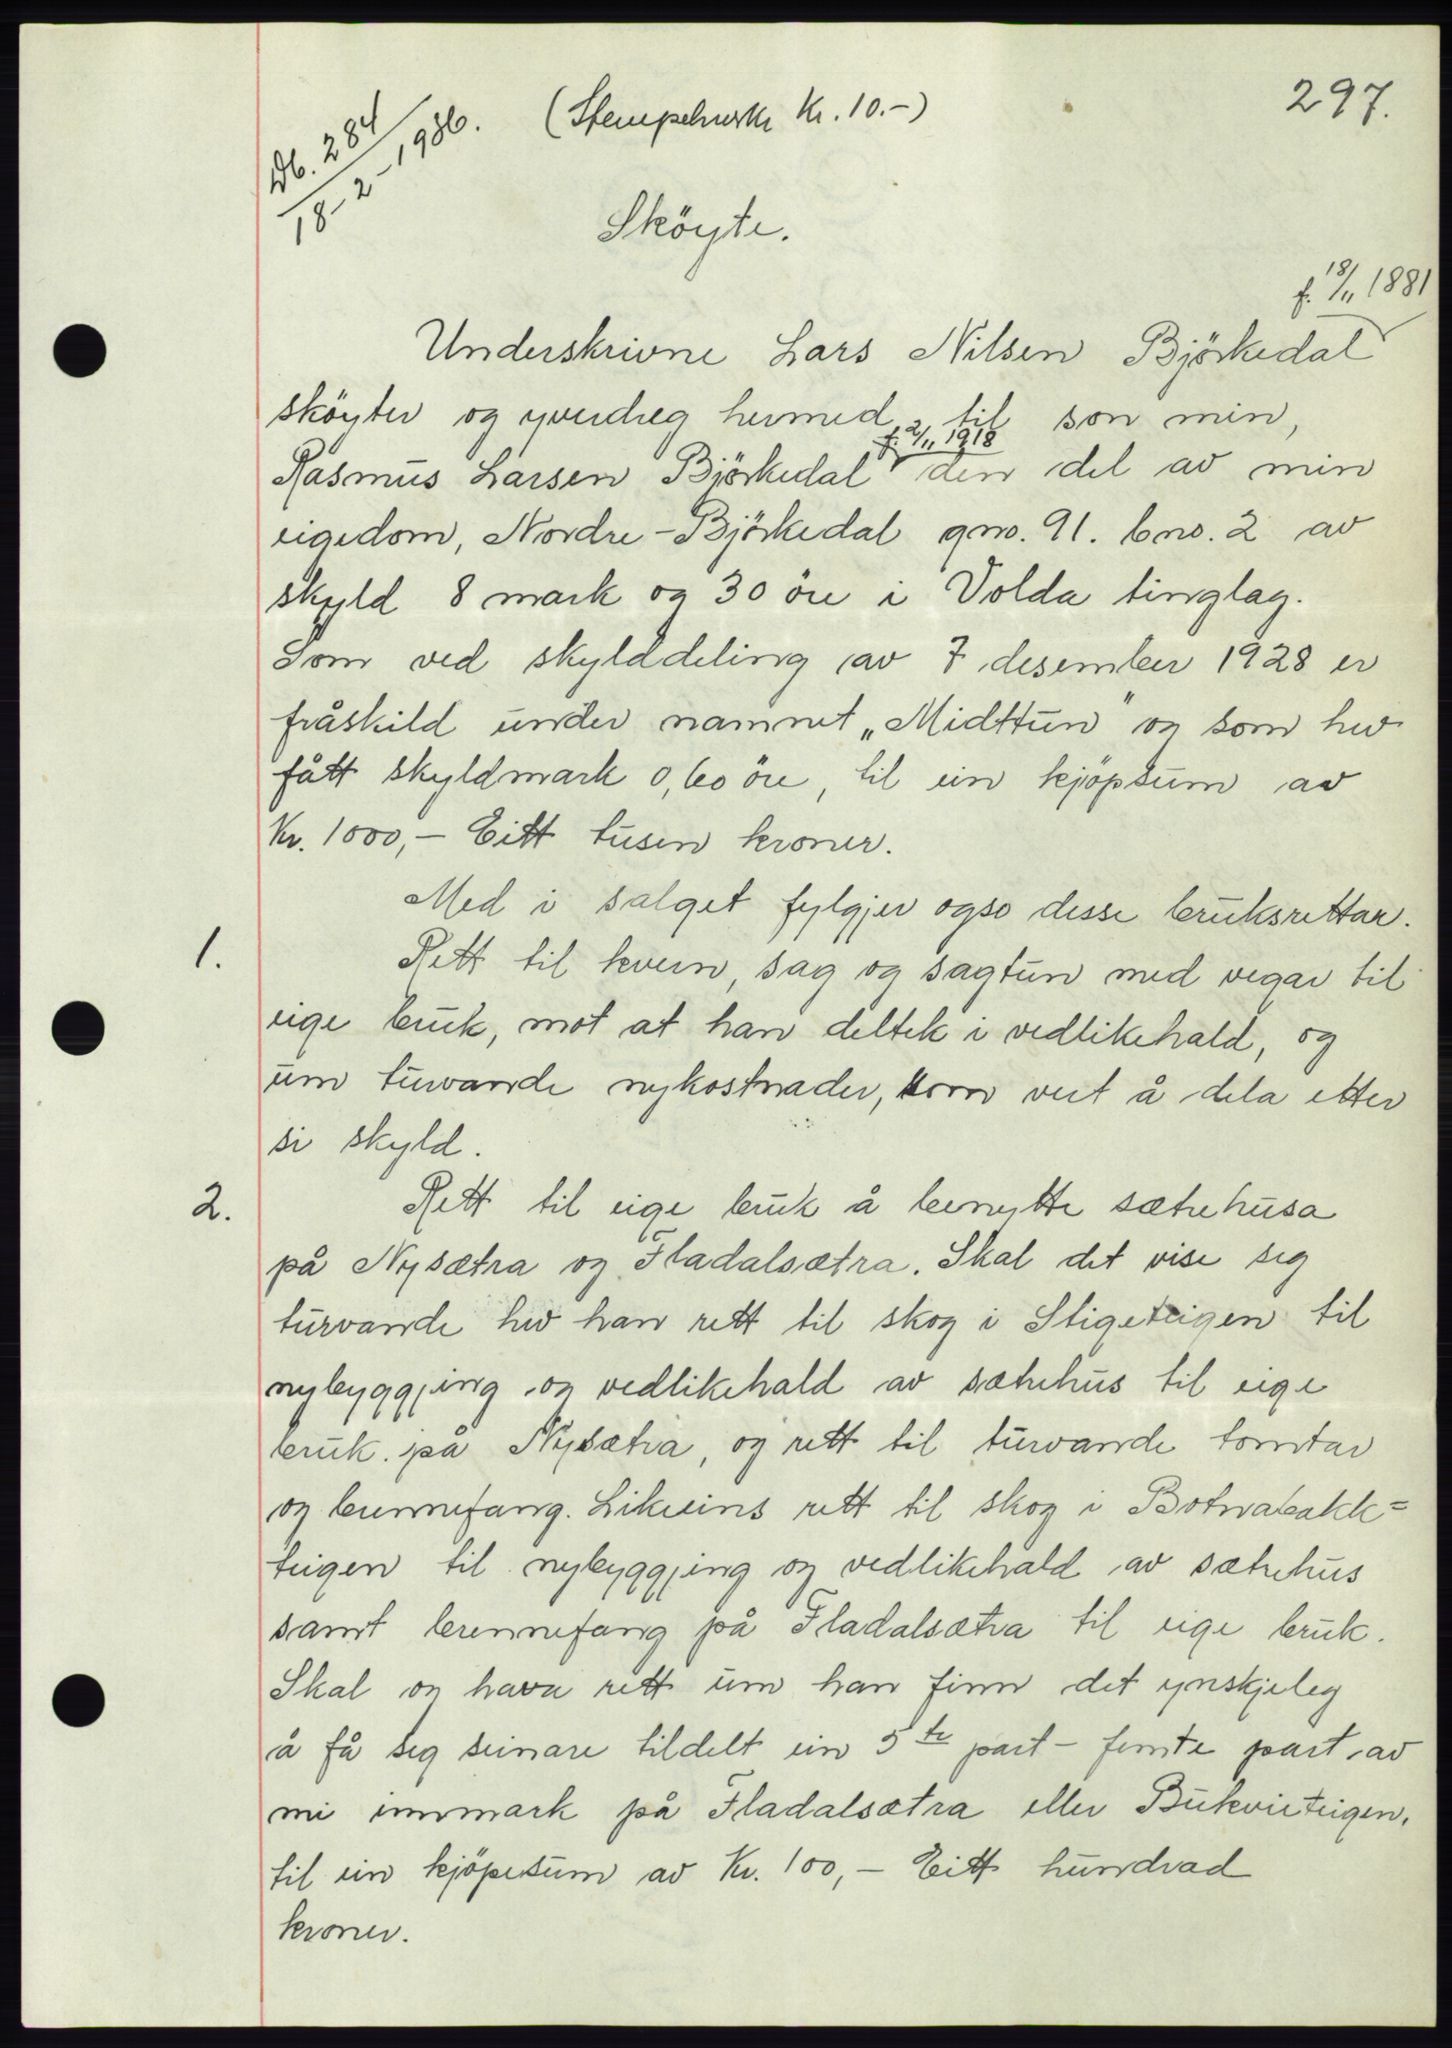 297.
Db. 284
18-2-1936.
(Stempelmerke Kr. 10.-)
Sköyte.
f. 18/11 1881
Underskrivne Lars Nilsen Björkedal
sköyter og yverdreg hermed til son min,
f. 2/11 1918
Rasmus Larsen Björkedal den del av min
eigedom, Nordre-Björkedal gno. 91. bno. 2 av
skyld 8 mark og 30 öre i Volda tinglag.
Som ved skylddeling av 7 desember 1928 er
fråskild under namnet „Midttun" og som hev
fått skyldmark 0,60 öre, til ein kjöpsum av
Kr. 1000,- Eitt tusen kroner.
Med i salget fylgjer ogso desse bruksrettar.
1. Rett til kvern, sag og sagtun med vegar til
eige bruk, mot at han deltek i vedlikehald, og
um turvande nykostnader, som vert å dela etter
si skyld.
2. Rett til eige bruk å benytte sætrehusa
på Nysætra og Fladalsætra. Skal det vise seg
turvande hev han rett til skog i Stigeteigen til
nybyggjing og vedlikehald av sætrehus til eige
bruk på Nysætra, og rett til turvande tomtar
og brennefang. Likeeins rett til skog i Botnabakk=
teigen til nybyggjing og vedlikehald av sætrehus
samt brennefang på Fladalsætra til eige bruk.
Skal og hava rett um han finn det ynskjeleg
å få seg seinare tildelt ein 5te part - femte part av
mi innmark på Fladalsætra eller Bukvieteigen,
til ein kjöpesum av Kr. 100,- Eitt hundrad
kroner.